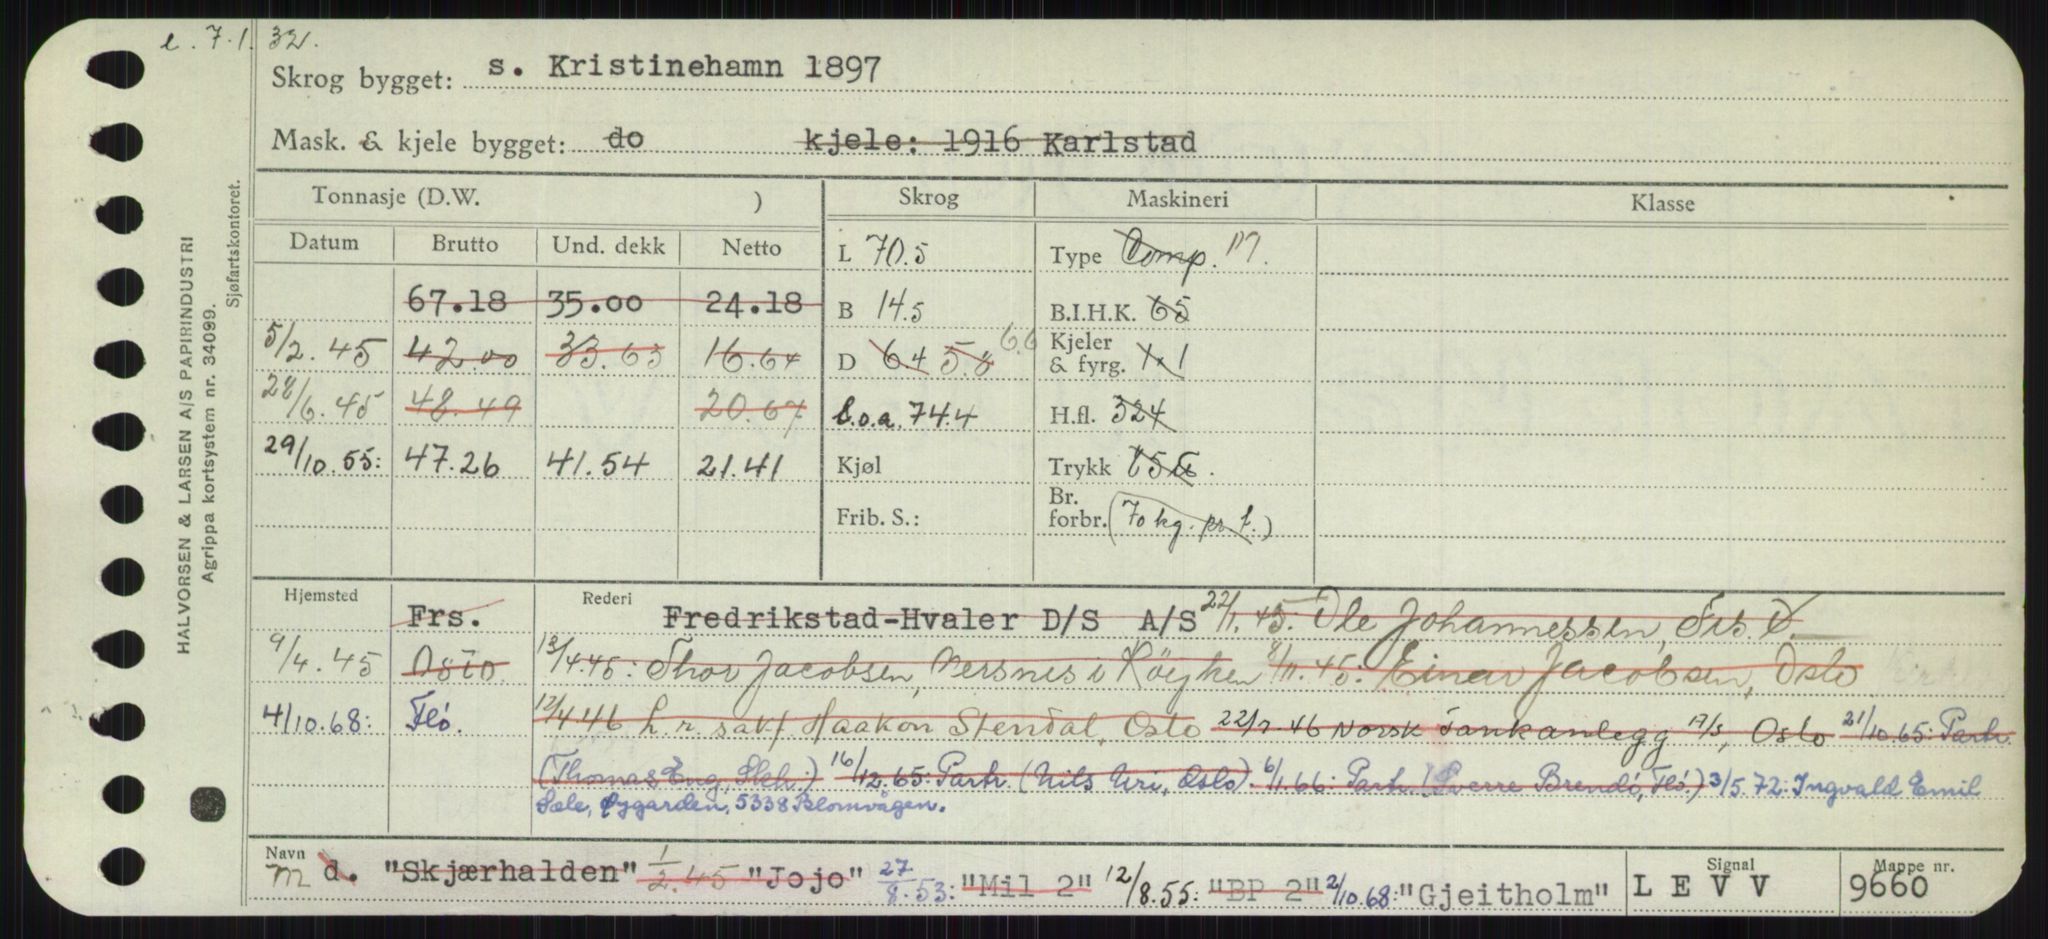 e. 7.1.32.
Skrog bygget: s. Kristinehamn 1897
Mask. & kjele bygget: do kjele: 1916 Karlstad
Tonnasje (D.W. ) Skrog Maskineri Klasse
Datum Brutto Und. dekk Netto
L 70.5 Type Comp. M.
67.18 35.00 24.18 B 14.5 B.I.H.K. 65
5/2.45 42.00 33.63 16.64 D 6.4 5.8 6.6 Kjeler & fyrg. 1.1
28/6.45 48.49 20.67 l.o.a. 74.4 H.fl. 324
29/10.55: 47.26 41.54 21.41 Kjøl Trykk
Frib. S.: Br. forbr. (70 kg. pr t.)
Hjemsted Rederi
Frs. Fredrikstad-Hvaler D/S A/S 22/1.45. Ole Johannessen, Frs.
9/4.45 Oslo 13/4.45: Thor Jacobsen, Nersnes i Röyken 8/11.45: Einar Jacobsen, Oslo
4/10.68: Flö. 12/4.46 h.r. sakf Haakon Stendal, Oslo 22/7.46 Norsk Tankanlegg A/S, Oslo 21/10.65: Partr.
(Thomas Eng, Skh.) 16/12.65: Partr. (Nils Uri, Oslo). 6/1.66: Partr. (Sverre Brendö, Flö.) 3/5.72: Ingvald Emil
Sæle, Øygarden, 5338 Blomvågen.
Navn Signal Mappe nr.
m d. "Skjærhalden" 1/2.45 "Jojo" 27/8.53: "Mil 2" 12/8.55: "BP 2" 2/10.68: "Gjeitholm" L E V V 9660
HALVORSEN & LARSEN A/S PAPIRINDUSTRI
Agrippa kortsystem nr. 34099.
Sjøfartskontoret.